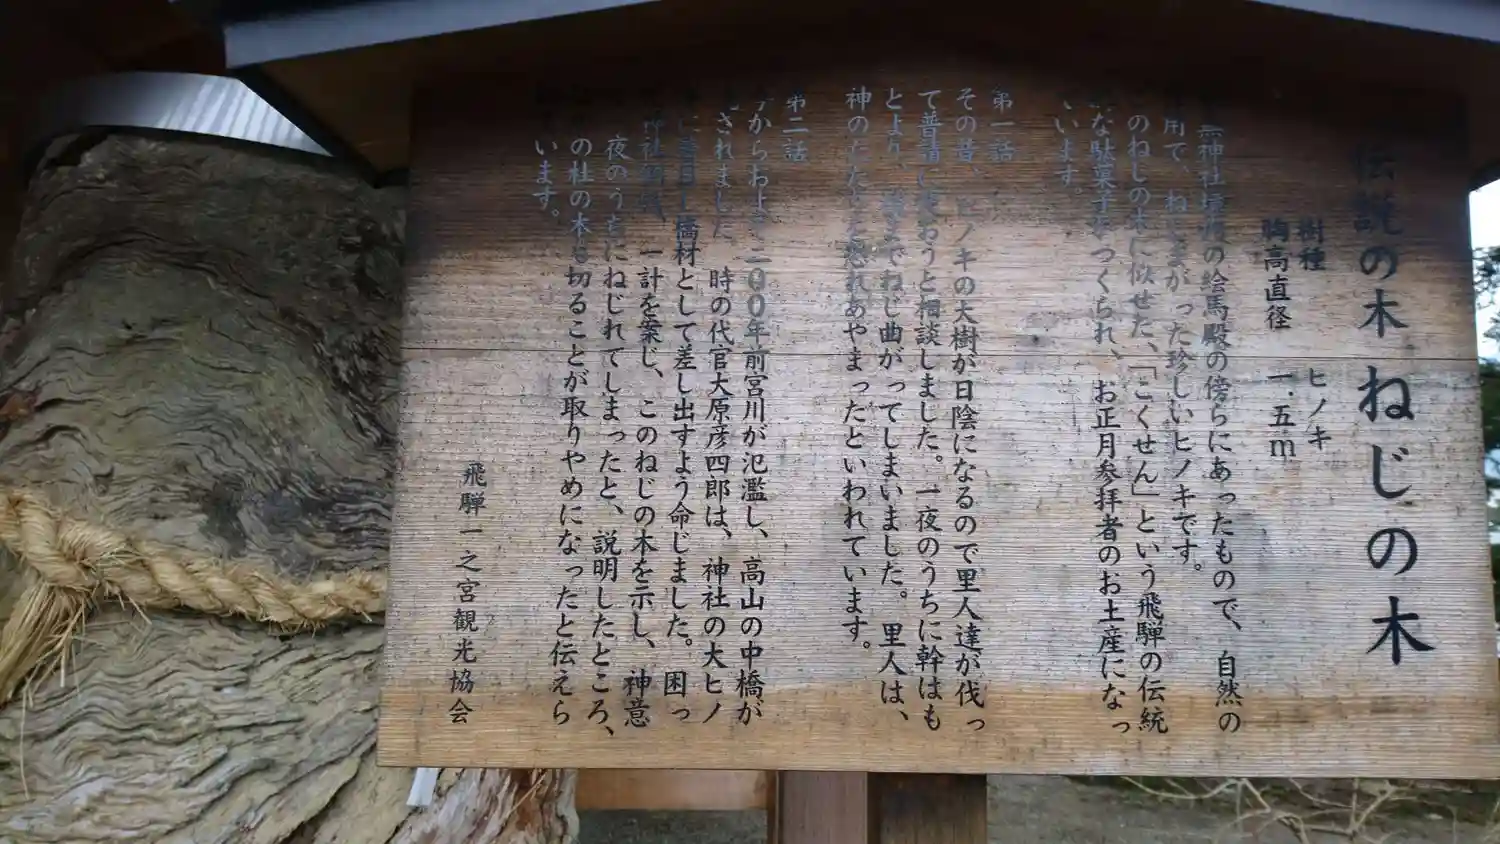 伝説の木 ねじの木
樹種 ヒノキ
胸高直径 一.五m
無神社境内の絵馬殿の傍らにあったもので、自然の
用で、ねじまがった珍しいヒノキです。
のねじの木に似せた、「こくせん」という飛騨の伝統
な駄菓子がつくられ、お正月参拝者のお土産になっ
います。
第一話
その昔、ヒノキの大樹が日陰になるので里人達が伐っ
て普請に使おうと相談しました。一夜のうちに幹はも
とより、までねじ曲がってしまいました。里人は、
神のたたりを恐れあやまったといわれています。
第二話
からおよそ二〇〇年前宮川が氾濫し、高山の中橋が
されました。時の代官大原彦四郎は、神社の大ヒノ
橋材として差し出すよう命じました。困っ
神社、一計を案じ、このねじの木を示し、神意
夜のうちにねじれてしまったと、説明したところ、
の杜の木を切ることが取りやめになったと伝えら
います。
飛騨一之宮観光協会